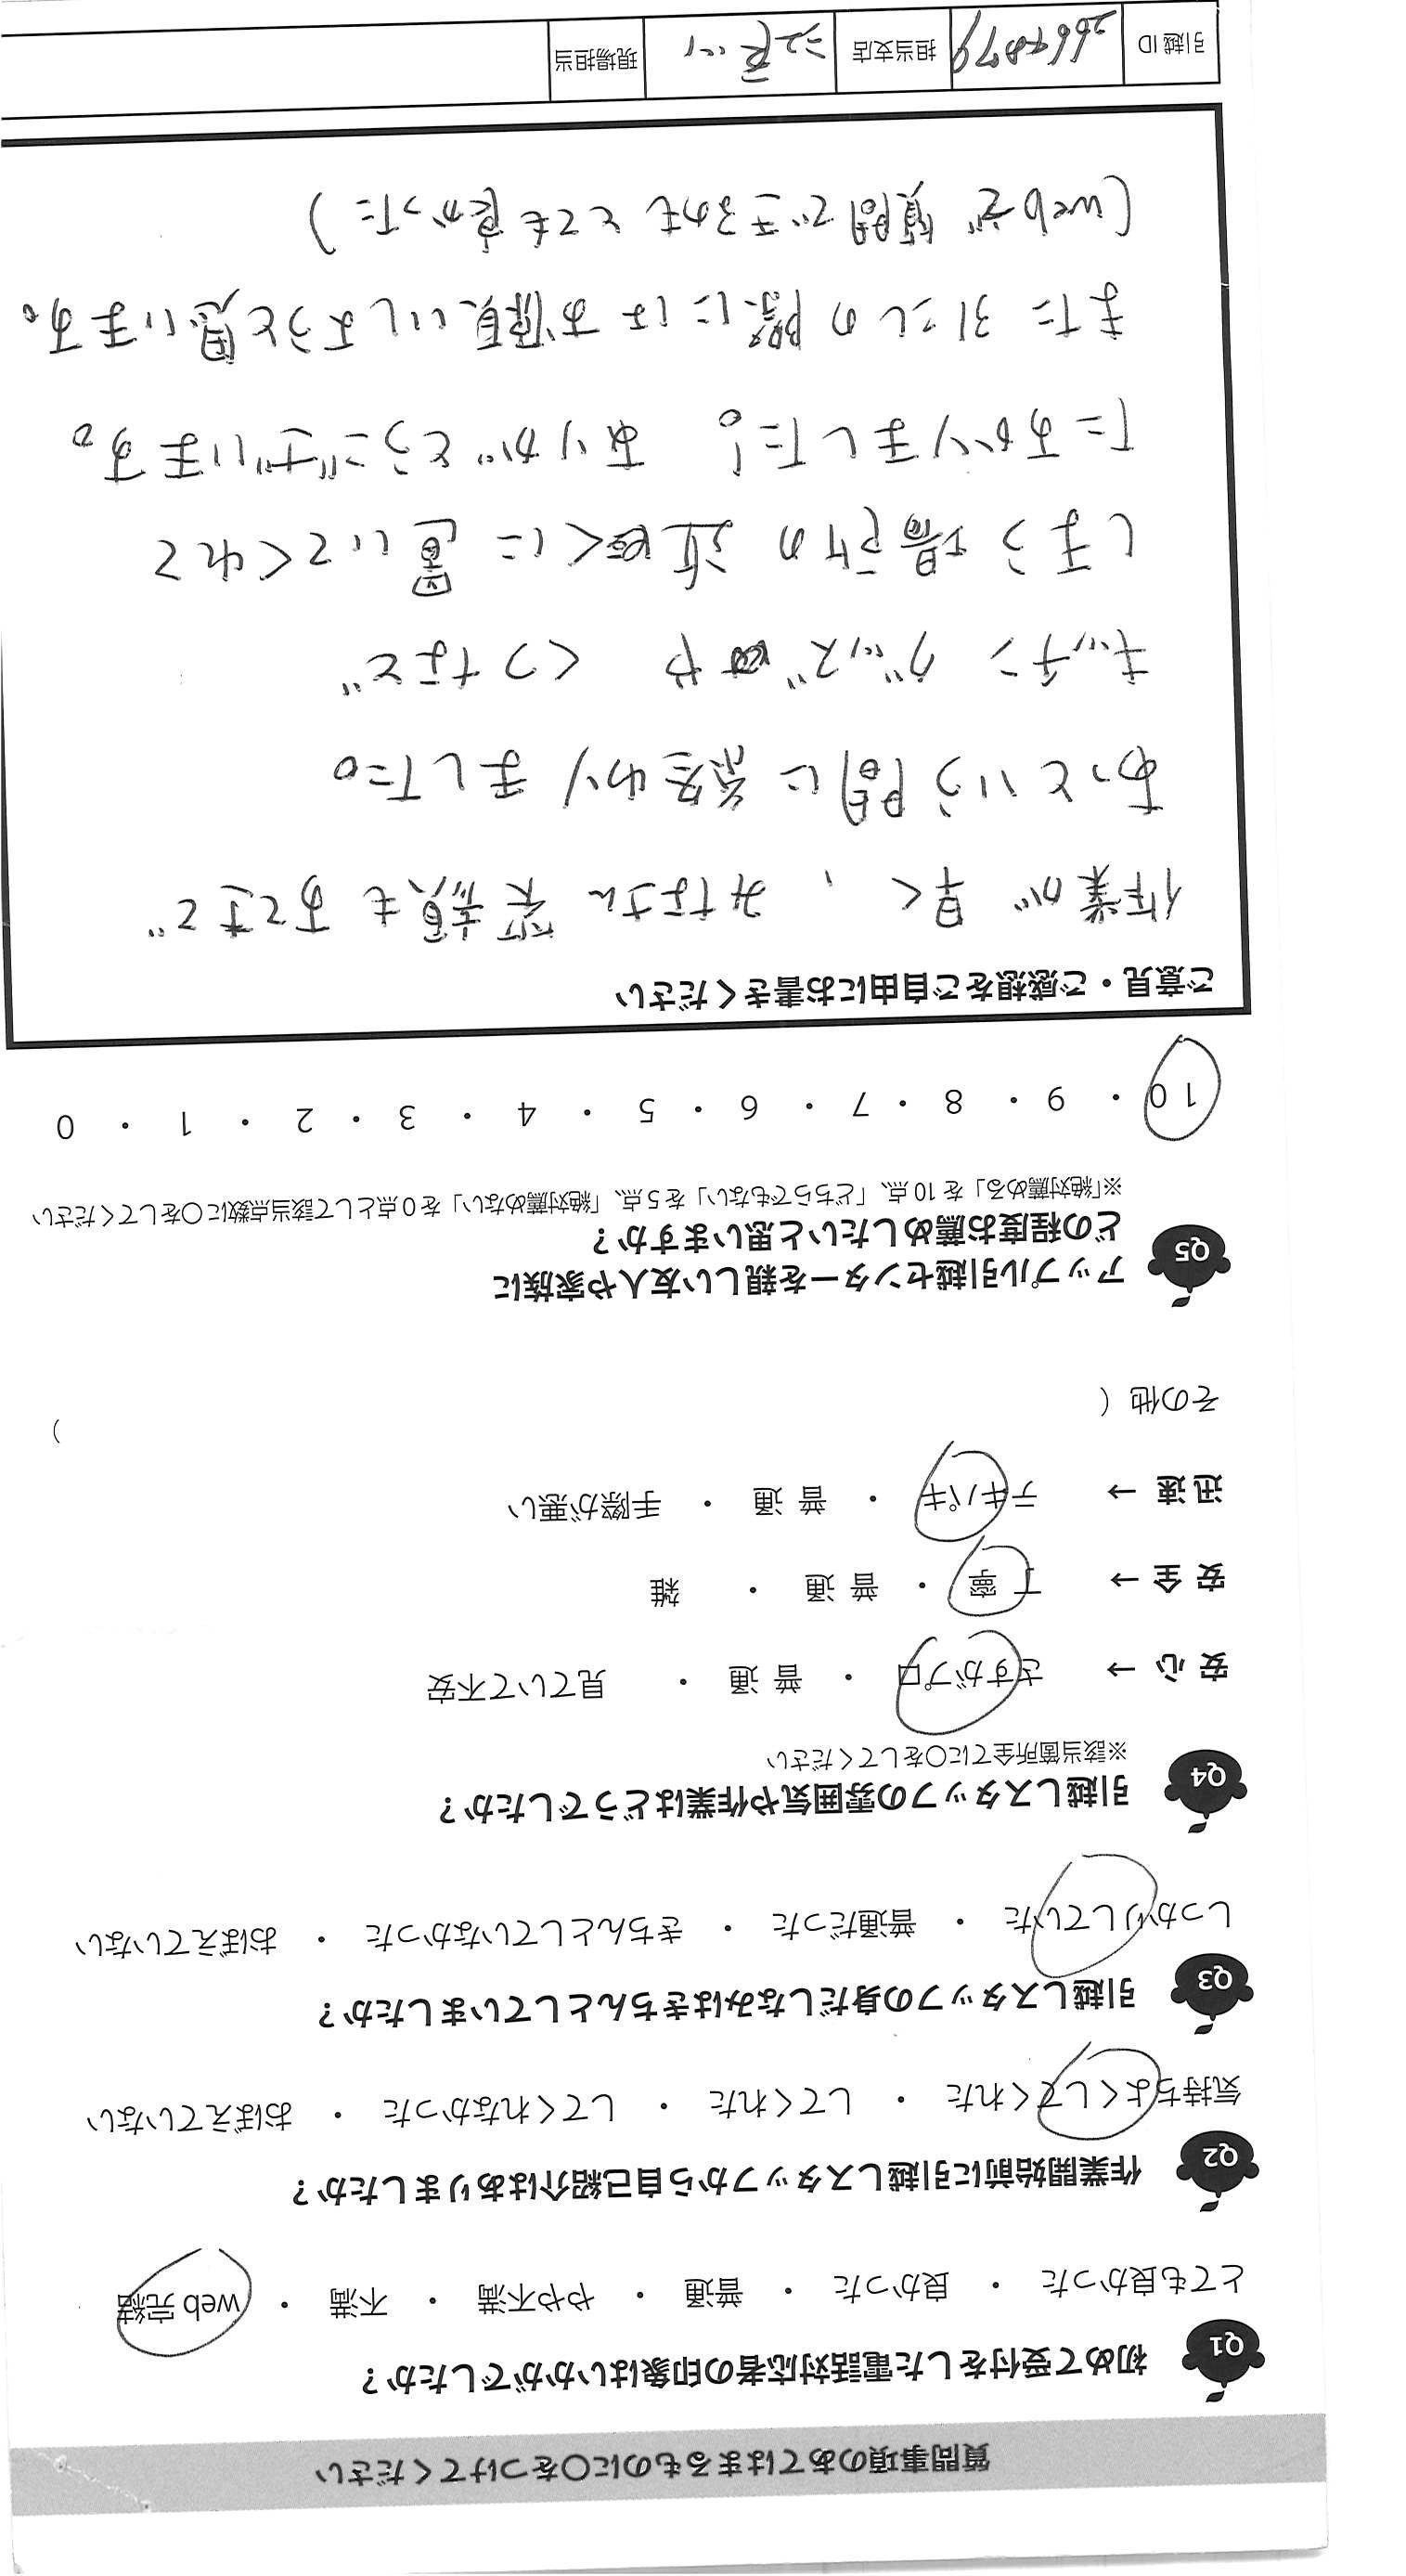 質問事項のあてはまるものに○をつけてください
Q1 初めて受付をした電話対応者の印象はいかがでしたか？
とても良かった ・ 良かった ・ 普通 ・ やや不満 ・ 不満 ・ web 完結
Q2 作業開始前に引越しスタッフから自己紹介はありましたか？
気持ちよくしてくれた ・ してくれた ・ してくれなかった ・ おぼえていない
Q3 引越しスタッフの身だしなみはきちんとしていましたか？
しっかりしていた ・ 普通だった ・ きちんとしていなかった ・ おぼえていない
Q4 引越しスタッフの雰囲気や作業はどうでしたか？
※該当箇所全てに○をしてください
安 心 → さすがプロ ・ 普 通 ・ 見ていて不安
安 全 → 丁 寧 ・ 普 通 ・ 雑
迅 速 → テキパキ ・ 普 通 ・ 手際が悪い
その他（ ）
Q5 アップル引越センターを親しい友人や家族に
どの程度お薦めしたいと思いますか？
※「絶対薦める」を 10 点、「どちらでもない」を 5 点、「絶対薦めない」を 0 点として該当点数に○をしてください
10 ・ 9 ・ 8 ・ 7 ・ 6 ・ 5 ・ 4 ・ 3 ・ 2 ・ 1 ・ 0
ご意見・ご感想をご自由にお書きください
作業が早く、みなさん笑顔もあてきて
あっという間に終わりました。
キッチングッズや くつなど
しまう場所の近くに置いてくれて
たすかりました！ ありがとうございます。
また引こしの際にはお願いしようと思います。
（webで質問できるのもとても良かった）
引越 ID 担当支店 江戸川 現場担当